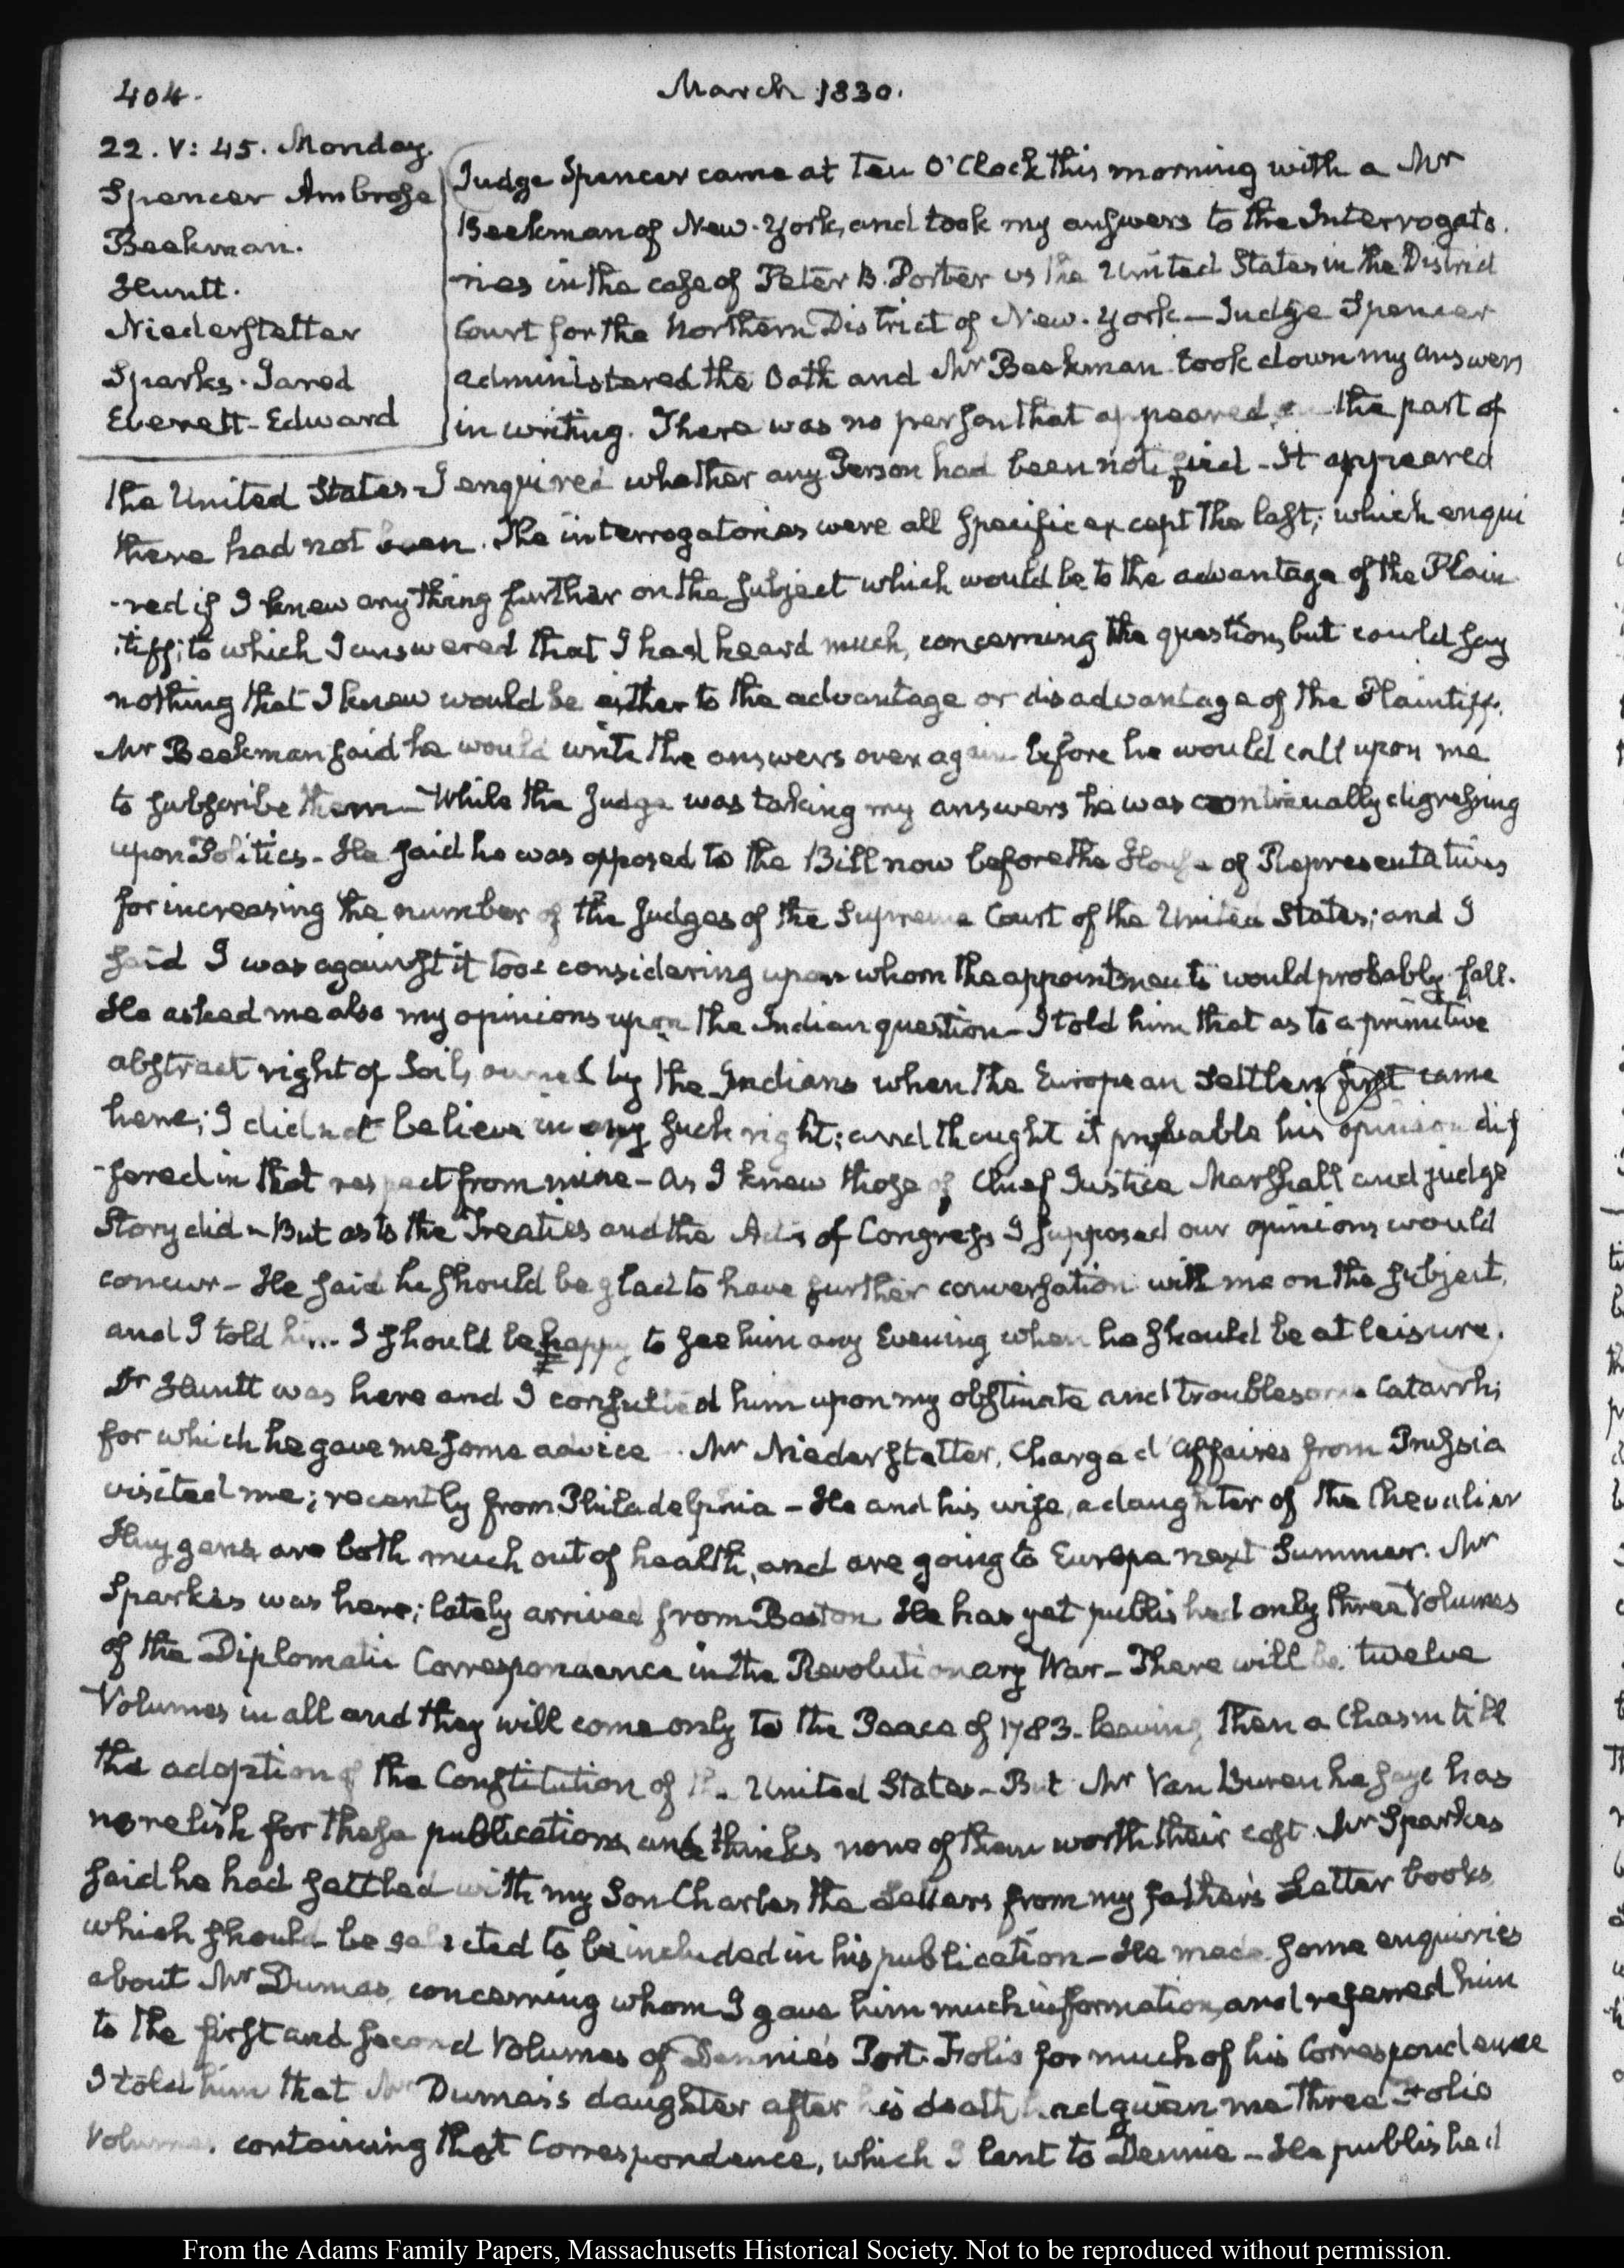 404.
March 1830.
22. V: 45. Monday.
Spencer Ambrose
Beekman.
Huntt.
Niederstetter
Sparks. Jared
Everett- Edward
Judge Spencer came at Ten O'Clock this morning with a Mr
Beekman of New-York, and took my answers to the Interrogato.
ries in the case of Peter B. Porter vs the United States in the District
Court for the Northern District of New-York — Judge Spencer
administered the Oath and Mr Beekman took down my answers
in writing. There was no person that appeared on the part of
the United States - I enquired whether any Person had been notified - It appeared
there had not been. The interrogatories were all specific except the last; which enqui
-red if I knew any thing further on the subject which would be to the advantage of the Plain
-tiff; to which I answered that I had heard much, concerning the question, but could say
nothing that I knew would be either to the advantage or disadvantage of the Plaintiff.
Mr Beekman said he would write the answers over again before he would call upon me
to subscribe them — While the Judge was taking my answers he was continually digressing
upon Politics - He said he was opposed to the Bill now before the House of Representatives
for increasing the number of the Judges of the Supreme Court of the United States; and I
said I was against it too: considering upon whom the appointments would probably fall.
He asked me also my opinions upon the Indian question - I told him that as to a primitive
abstract right of Soil, owned by the Indians when the European Settlers first came
here; I did not believe in any such right; and thought it probable his opinion dif
-fered in that respect from mine - as I knew those of Chief Justice Marshall and judge
Story did - But as to the Treaties and the Acts of Congress I supposed our opinions would
concur - He said he should be glad to have further conversation with me on the subject,
and I told him I should be happy to see him any Evening when he should be at leisure.
Dr Huntt was here and I consulted him upon my obstinate and troublesome Catarrh;
for which he gave me some advice. Mr Niederstetter, Chargé d'Affaires from Prussia
visited me; recently from Philadelphia - He and his wife, a daughter of the Chevalier
Huygens are both much out of health, and are going to Europe next Summer. Mr
Sparks was here; lately arrived from Boston He has yet published only three Volumes
of the Diplomatic Correspondence in the Revolutionary War - There will be twelve
Volumes in all and they will come only to the Peace of 1783 - leaving then a Chasm till
the adoption of the Constitution of the United States - But Mr Van Buren he says has
no relish for these publications and thinks none of them worth their cost. Mr Sparks
said he had settled with my Son Charles the Letters from my father's Letter books
which should be selected to be included in his publication - He made some enquiries
about Mr Dumas, concerning whom I gave him much information, and referred him
to the first and second Volumes of Dennie's Port-Folio for much of his Correspondence
I told him that Mr Dumas's daughter after his death had given me three Folio
Volumes, containing that Correspondence, which I lent to Dennie - He published
From the Adams Family Papers, Massachusetts Historical Society. Not to be reproduced without permission.